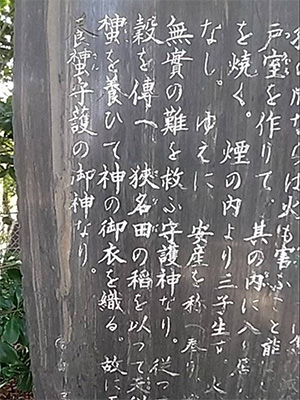 火も害ふこと能
戸室を作りて、其の内に入り
を焼く。煙の内より三子生
なし。ゆえに安産を称へ奉り 火
無實の難を救ふ守護神なり。従つ
穀を傳へ、狭名田の稲を以つて
蚕を養ひて神の御衣を織る。故に
養蚕守護の御神なり。